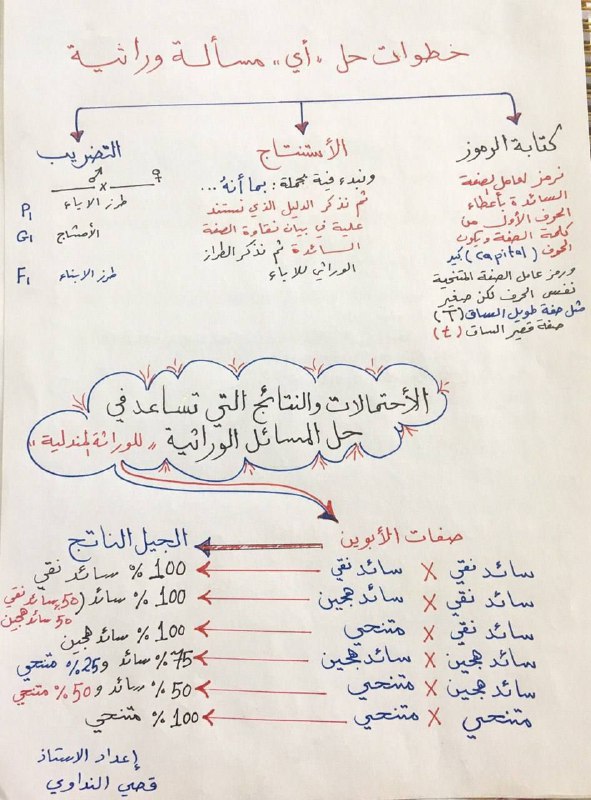 خطوات حل "أي" مسألة وراثية
كتابة الرموز
نرمز لعامل لصفة
السائدة بأعطاء
الحرف الأول من
كلمة الصفة ويكون
الحرف (capital) كبير
ورمز عامل الصفة المتنحية
نفس الحرف لكن صغير
مثل صفة طويل الساق (T)
صفة قصير الساق (t)
الأستنتاج
ونبدء فية بجملة: بما أنهُ ...
ثم نذكر الدليل الذي نستند
علية في بيان نقاوة الصفة
السائدة ثم نذكر الطراز
الوراثي للاباء
التضريب
♂ x ♀
P1 طرز الاباء
G1 الأمشاج
F1 طرز الابناء
الأحتمالات والنتائج التي تساعد في
حل المسائل الوراثية "للوراثة المندلية"
صفات الأبوين
الجيل الناتج
سائد نقي X سائد نقي 100 % سائد نقي
سائد نقي X سائد هجين 100 % سائد (50% سائد نقي
50 سائد هجين
سائد نقي X متنحي 100 % سائد هجين
سائد هجين X سائد هجين 75% سائد و 25% متنحي
سائد هجين X متنحي 50 % سائد و 50% متنحي
متنحي X متنحي 100 % متنحي
إعداد الاستاذ
قصي النداوي